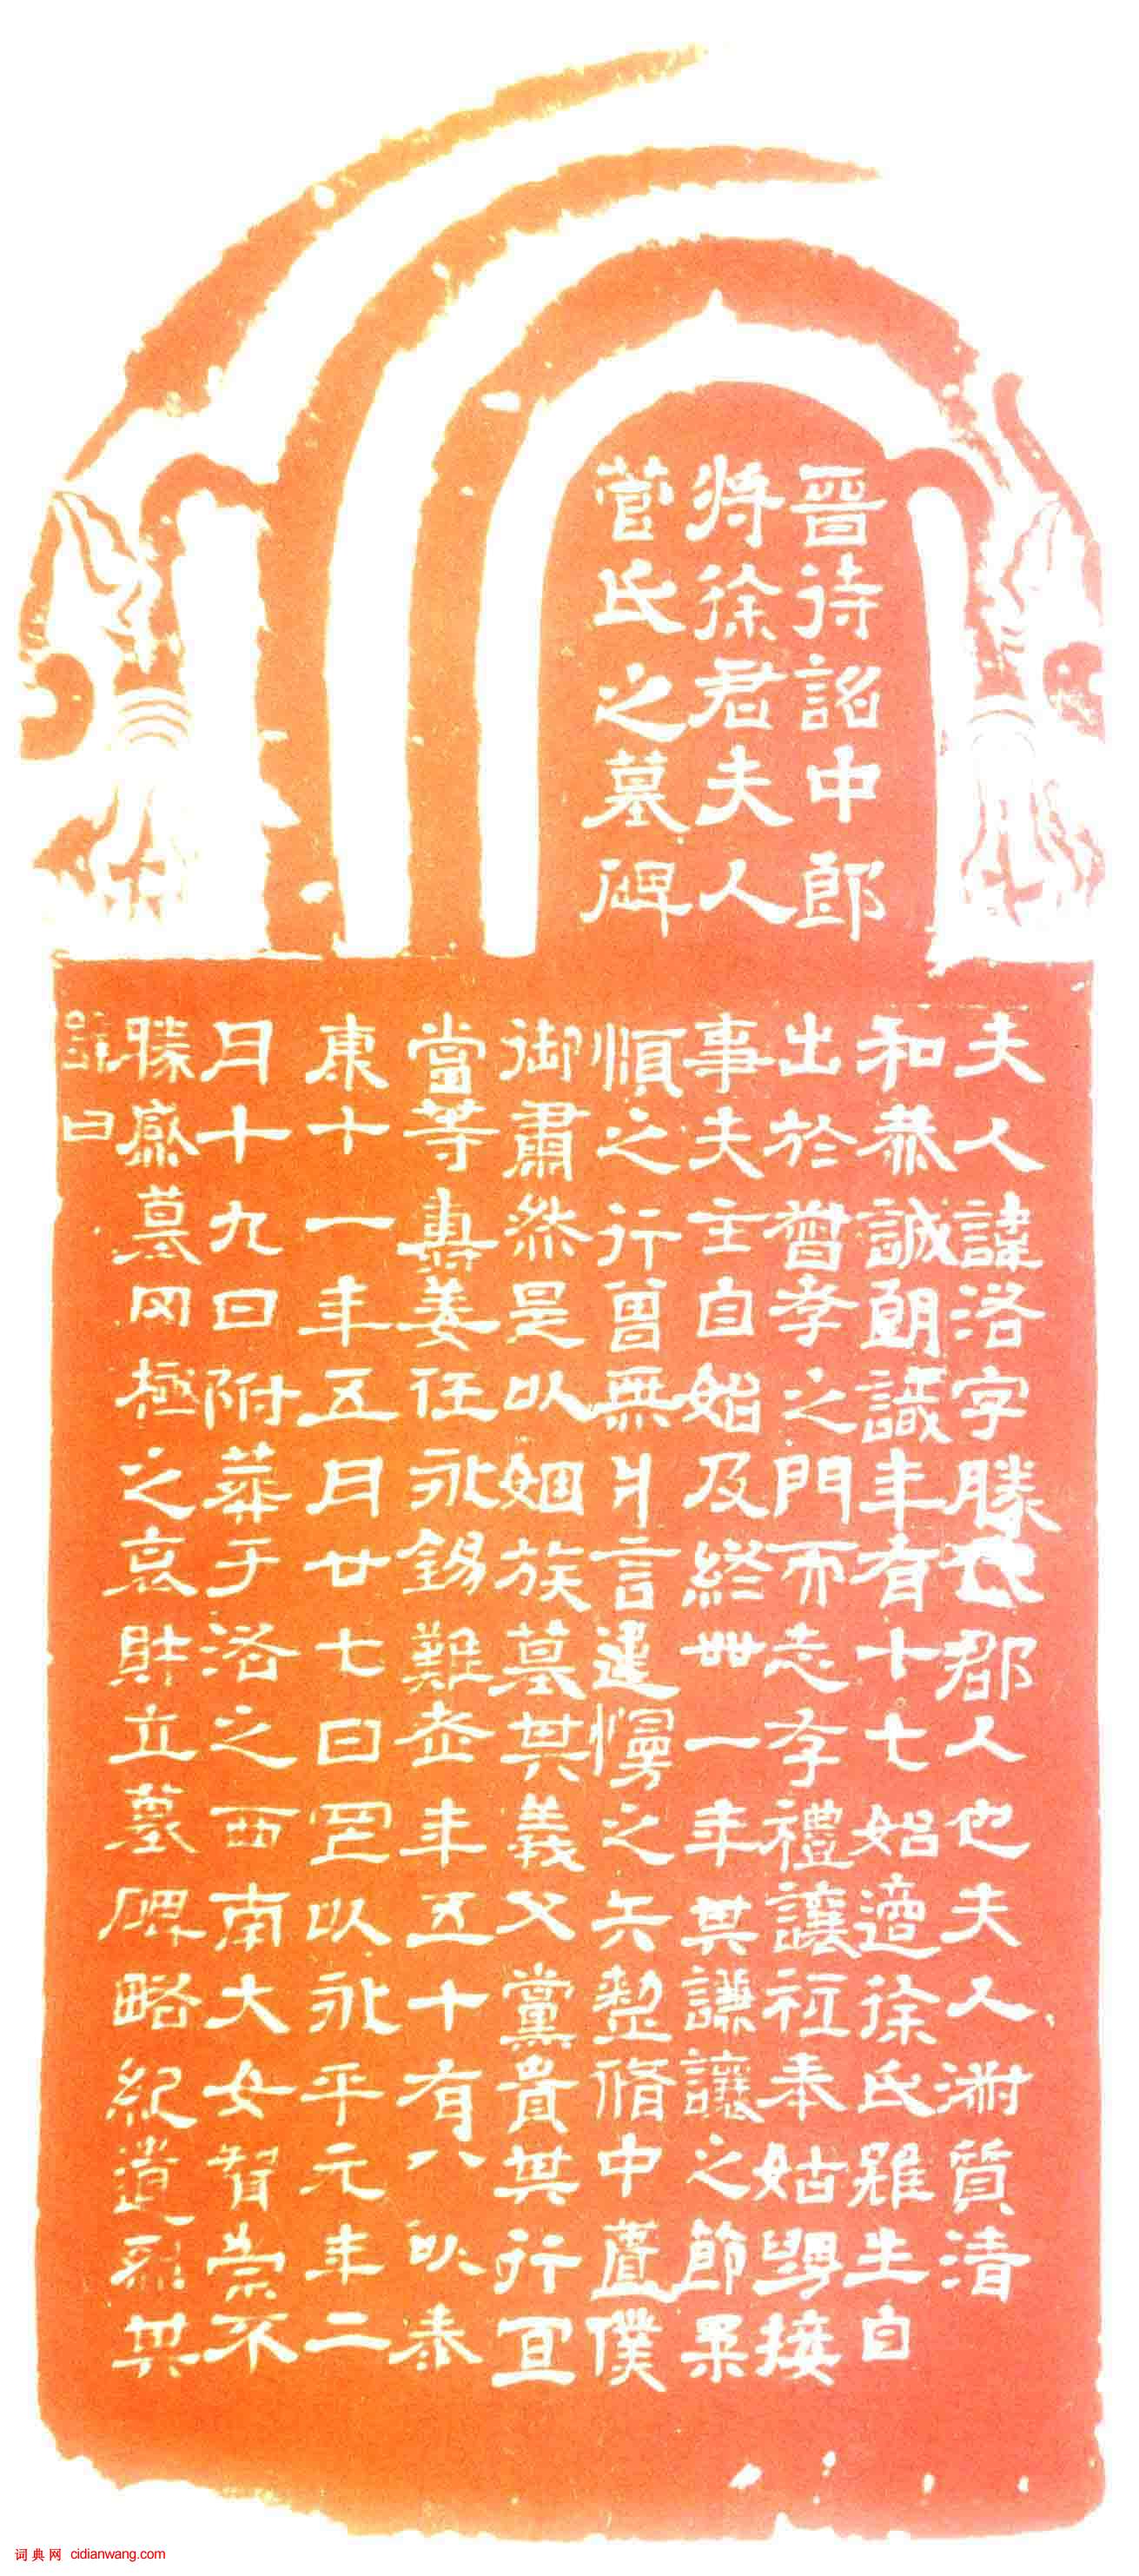 晉待詔中郎
將徐君夫人
菅氏之墓碑
夫人諱洛字勝代郡人也夫人淑質清
和恭誠朗識年有十七始適徐氏雖生自
出於督孝之門而志存禮讓祗奉姑舅接
事夫主自始及終卅一年其謙讓之節柔
順之行曾無片言違慢之矢整脩中匱僕
御肅然是以姻族慕其義父黨貴其行宜
當等壽姜任永錫難老年五十有八以泰
康十一年五月廿七日罡以永平元年二
月十九日附葬于洛之西南大女智崇不
勝感慕罔極之哀財立墓碑略紀遺烈其
辭曰
词典网 cidianwang.com